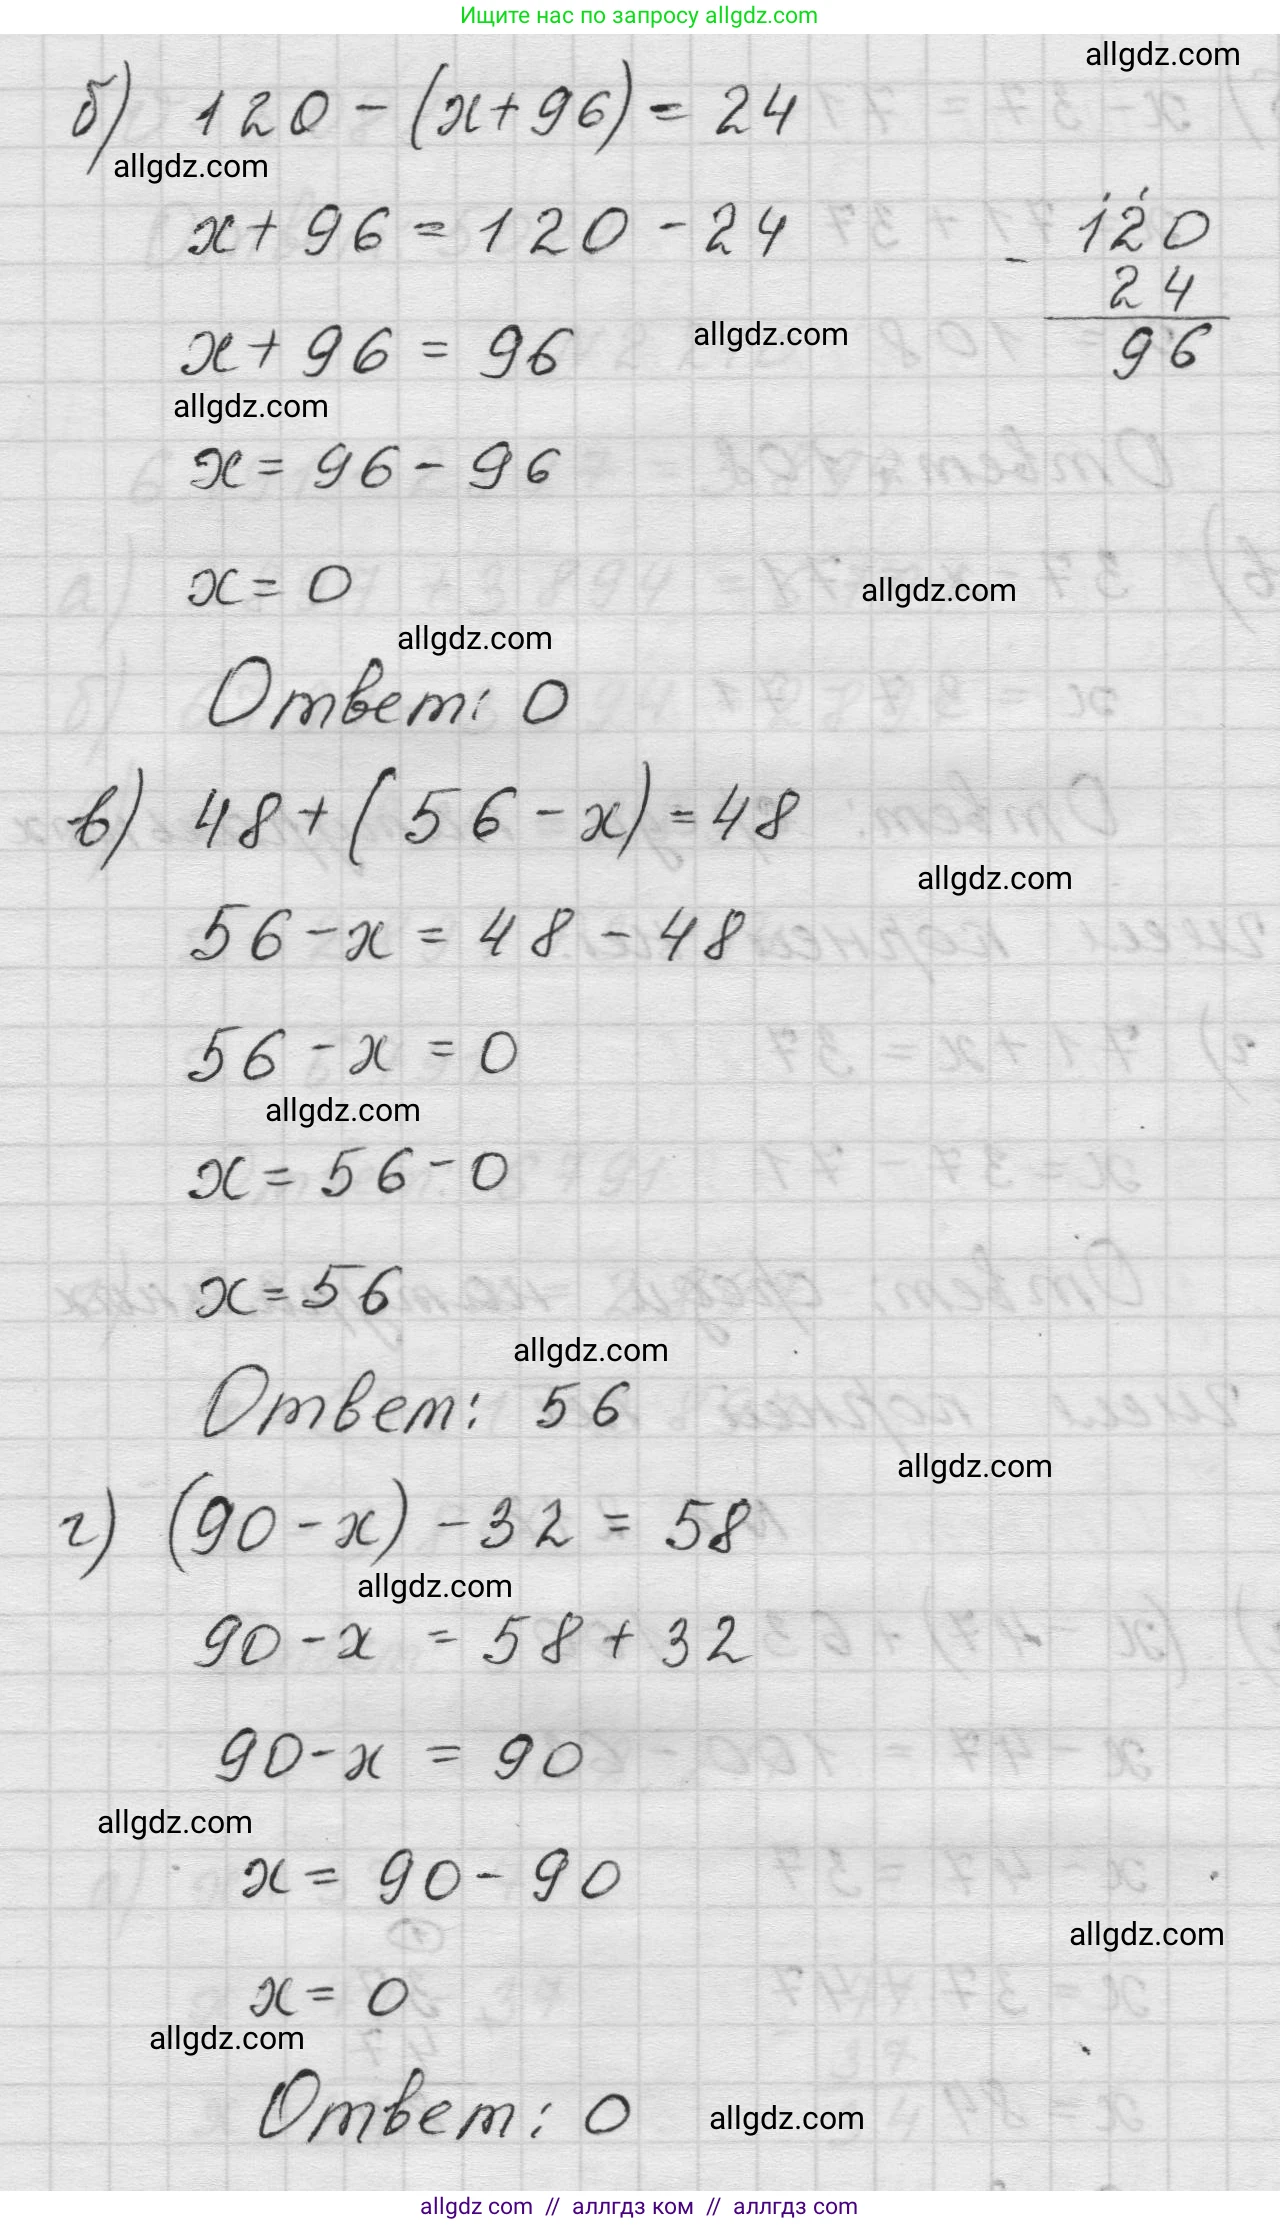 Ищите нас по запросу allgdz.com
allgdz.com
б) 120 - (x + 96) = 24
allgdz.com
x + 96 = 120 - 24
120
- 24
96
x + 96 = 96
allgdz.com
allgdz.com
x = 96 - 96
x = 0
allgdz.com
allgdz.com
Ответ: 0
в) 48 + (56 - x) = 48
allgdz.com
56 - x = 48 - 48
56 - x = 0
allgdz.com
x = 56 - 0
x = 56
allgdz.com
Ответ: 56
allgdz.com
г) (90 - x) - 32 = 58
allgdz.com
90 - x = 58 + 32
90 - x = 90
allgdz.com
x = 90 - 90
allgdz.com
x = 0
allgdz.com
Ответ: 0
allgdz.com
allgdz com // аллгдз ком // аллгдз com